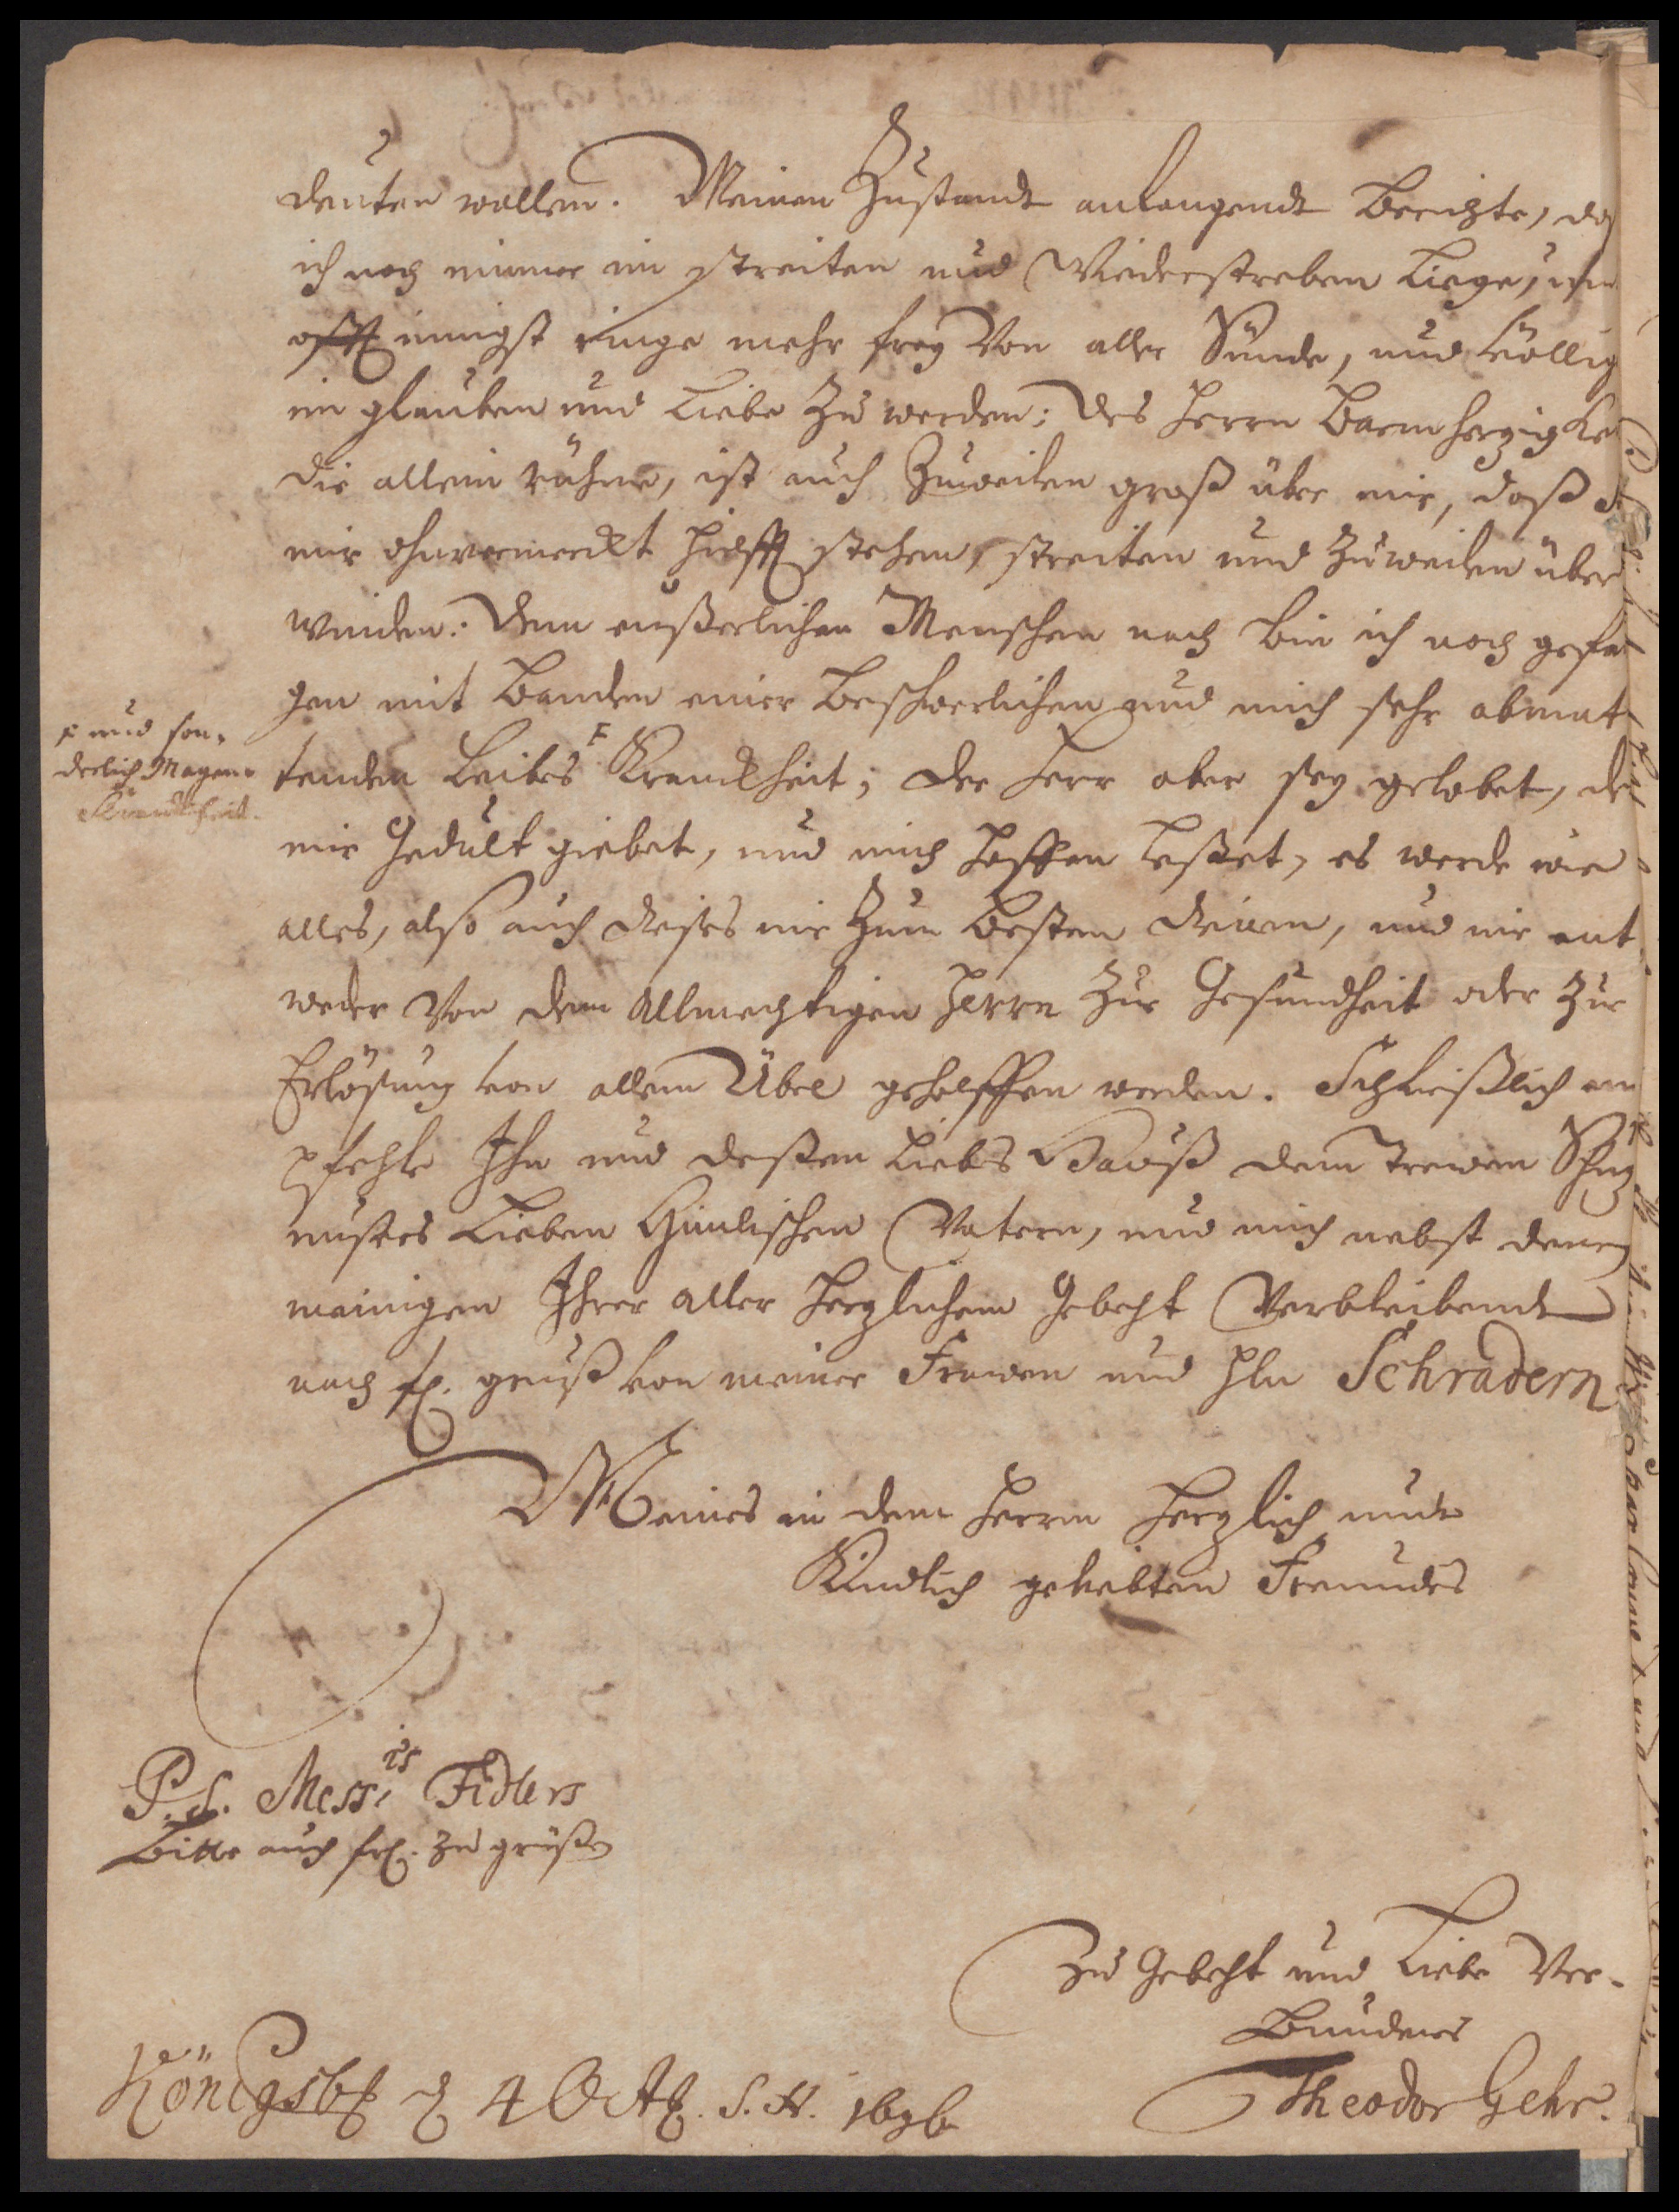 deuten wollen. Meinen Zustandt anlangendt Berichte, das
ich noch immer im streiten und Wiederstreben Liege, und
offt innigst ringe mehr frey Von aller Sünde, und völlig
im glauben und Liebe Zu werden: des Herrn Barmhertzigkeit
die allein rühme, ist auch Zuweilen groß über mir, daß Er
mir ohnvermerckt hilfft stehen, streiten und Zuweilen über
winden. Dem eußerlichen Menschen nach bin ich noch gefan
gen mit Banden einer Beschwerlichen und mich sehr abmat
tenden Leibes F Kranckheit; der Herr aber sey gelobet, der
F und son-
derlich Magen-
Kranckheit.
mir Gedult giebet, und mich hoffen leßet, es werde wie
alles, also auch dieses mir Zum Besten dienen, und mir ent
weder Von dem Allmechtigen Herrn Zur Gesundheit oder Zur
Erlösung von allem Übel geholffen werden. Schließlich em
pfehle Ihn und deßen liebes Hauß dem Trewen Schutz
unsers Lieben Himlischen Vatern, und mich nebst denen
meinigen Ihrer aller hertzlichem Gebeht Verbleibendt
nach fr. gruß von meiner Frawen und Hln Schradern
Meines in dem Herrn hertzlich und
Kindlich geliebten Freundes
P.S. Mess.rs Fidlers
Bitte auch frl. zu grüßen
Zu Gebeht und Liebe Ver-
Bundenes
Königsbg d 4 Octb. S.N. 1696
Theodor Gehr.